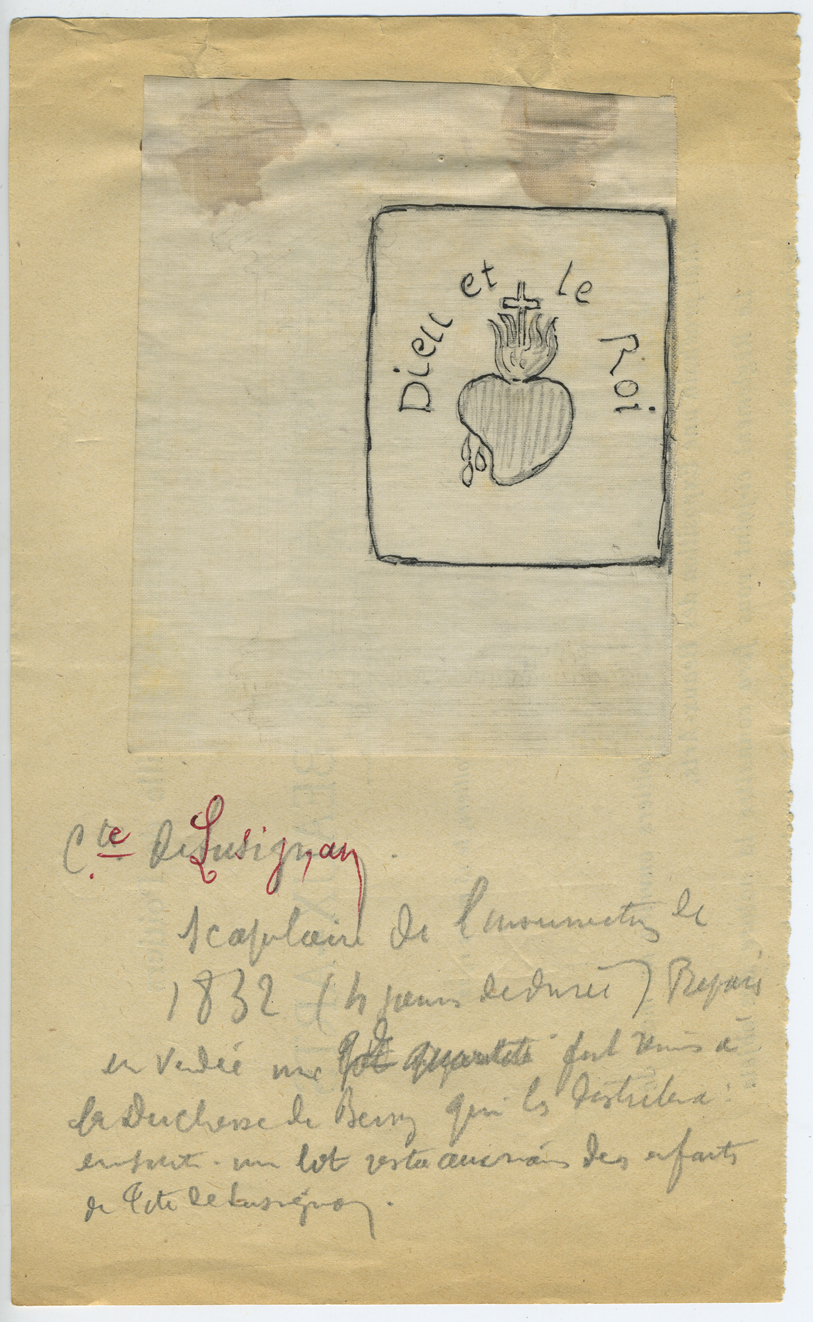 Dieu et le Roi
Cte de Lusignan
Scapulaire de l'insurrection de
1832 (4 jours de durée)
en Vendée une quantité fut remis à
la Duchesse de Berry qui les distribua
ensuite. un lot resta aux mains des enfants
du Cte de Lusignan.